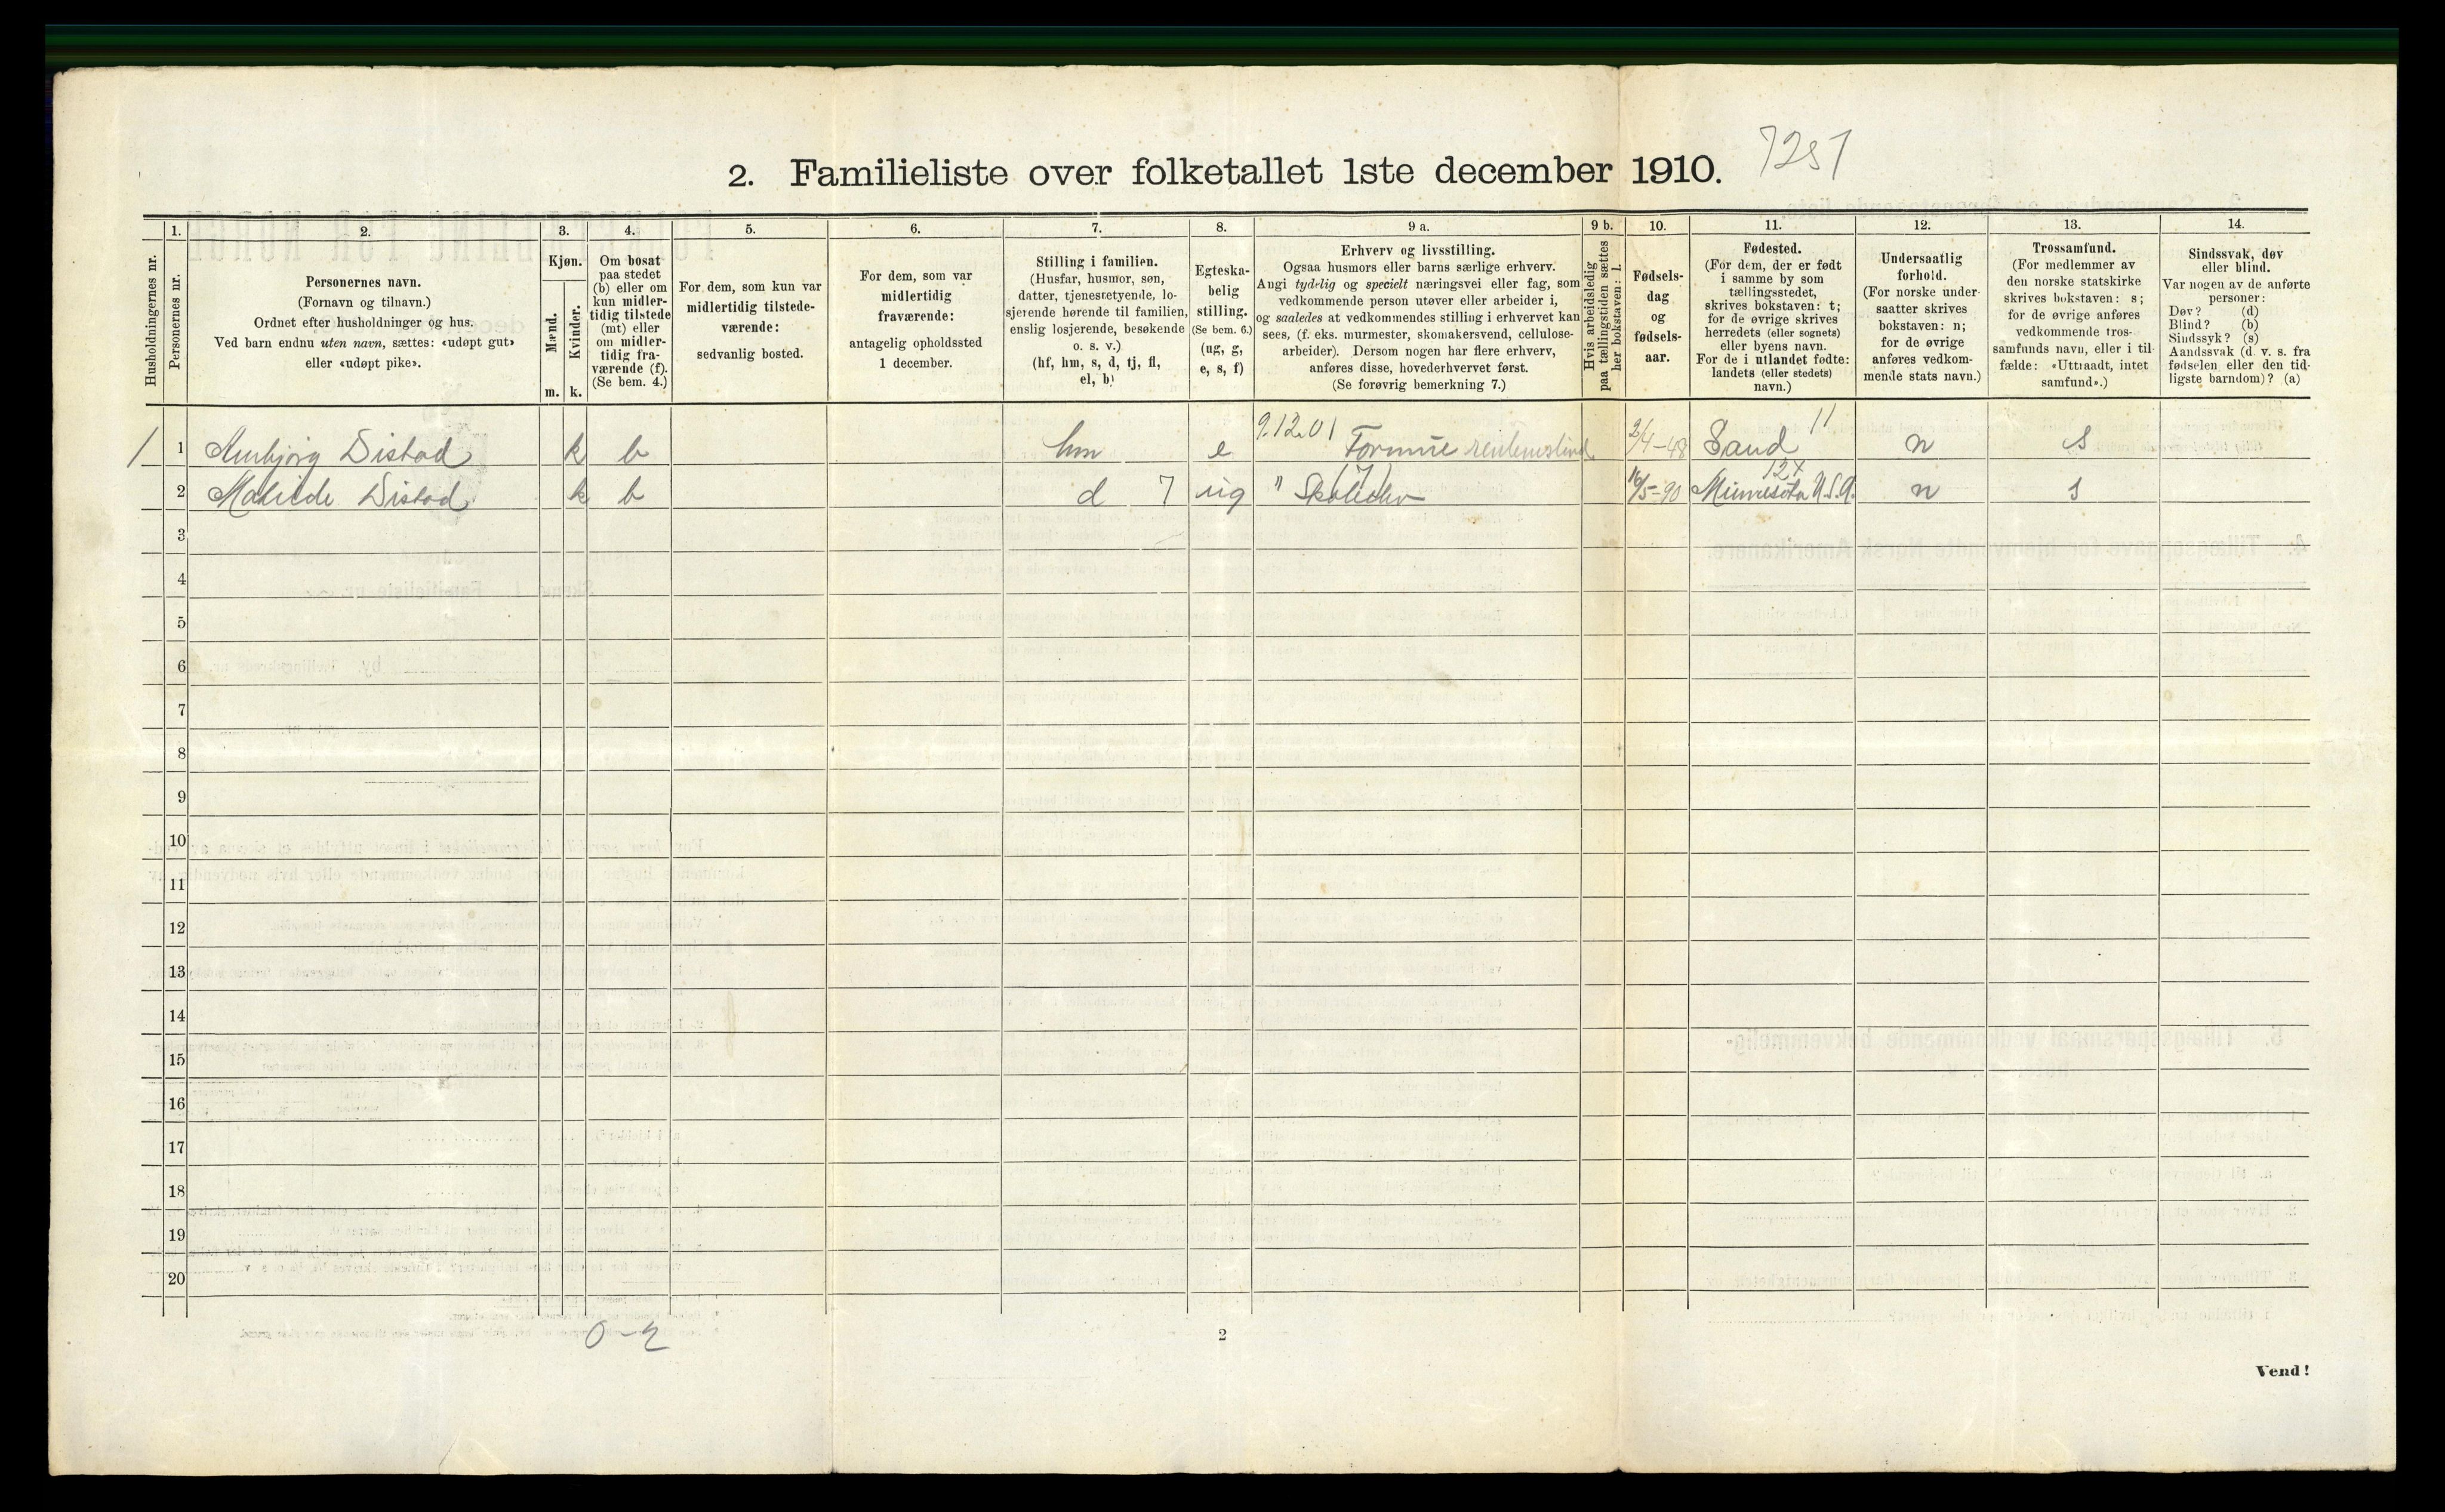 2. Familieliste over folketallet 1ste december 1910. 7251
Husholdningernes nr.
1.
Personernes nr.
2.
Personernes navn.
(Fornavn og tilnavn.)
Ordnet efter husholdninger og hus.
Ved barn endnu uten navn, sættes: «udøpt gut»
eller «udøpt pike».
3.
Kjøn.
Mænd.
m.
Kvinder.
k.
4.
Om bosat
paa stedet
(b) eller om
kun midler-
tidig tilstede
(mt) eller
om midler-
tidig fra-
værende (f).
(Se bem. 4.)
5.
For dem, som kun var
midlertidig tilstede-
værende:
sedvanlig bosted.
6.
For dem, som var
midlertidig
fraværende:
antagelig opholdssted
1 december.
7.
Stilling i familien.
(Husfar, husmor, søn,
datter, tjenestetyende, lo-
sjerende hørende til familien,
enslig losjerende, besøkende
o. s. v.)
(hf, hm, s, d, tj, fl,
el, b)
8.
Egteska-
belig
stilling.
(Se bem. 6.)
(ug, g,
e, s, f)
9 a.
Erhverv og livsstilling.
Ogsaa husmors eller barns særlige erhverv.
Angi tydelig og specielt næringsvei eller fag, som
vedkommende person utøver eller arbeider i,
og saaledes at vedkommendes stilling i erhvervet kan
sees, (f. eks. murmester, skomakersvend, cellulose-
arbeider). Dersom nogen har flere erhverv,
anføres disse, hovederhvervet først.
(Se forøvrig bemerkning 7.)
9 b.
Hvis arbeidsledig
paa tællingstiden sættes
her bokstaven: l.
10.
Fødsels-
dag
og
fødsels-
aar.
11.
Fødested.
(For dem, der er født
i samme by som
tællingsstedet,
skrives bokstaven: t;
for de øvrige skrives
herredets (eller sognets)
eller byens navn.
For de i utlandet fødte:
landets (eller stedets)
navn.)
12.
Undersaatlig
forhold.
(For norske under-
saatter skrives
bokstaven: n;
for de øvrige
anføres vedkom-
mende stats navn.)
13.
Trossamfund.
(For medlemmer av
den norske statskirke
skrives bokstaven: s;
for de øvrige anføres
vedkommende tros-
samfunds navn, eller i til-
fælde: «Uttraadt, intet
samfund».)
14.
Sindssvak, døv
eller blind.
Var nogen av de anførte
personer:
Døv? (d)
Blind? (b)
Sindssyk? (s)
Aandssvak (d. v. s. fra
fødselen eller den tid-
ligste barndom)? (a)
9.12.01 11
1 1 Distad k b hm e Formue 2/4-48 Sand n s
12x
2 Distad k b d 7 ug " 16/5-90 Minnesota U.S.A. n s
3
4
5
6
7
8
9
10
11
12
13
14
15
16
17
18
19
20
0-2
2
Vend!